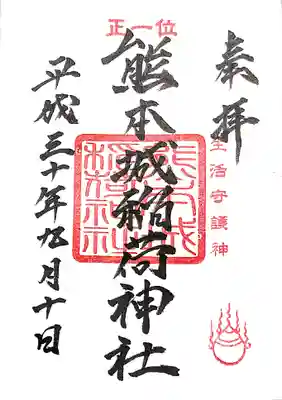 奉拝
生活守護神
正一位
熊本城稲荷神社
平成三十年九月十日